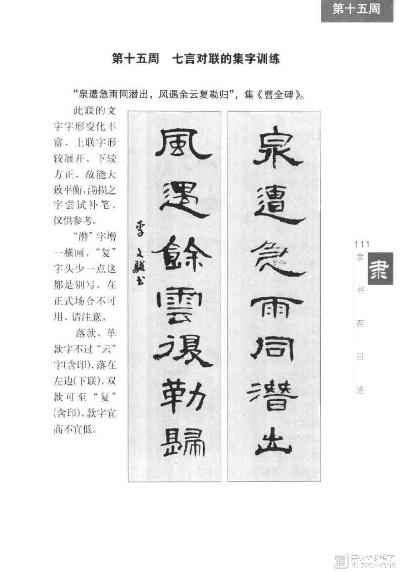 第十五周
第十五周 七言对联的集字训练
“泉遭急雨同潜出，风遇余云复勒归”，集《曹全碑》。
此联的文
字字形变化丰
富，上联字形
较展开，下较
方正，故能大
致平衡，泐损之
字尝试补笔，
仅供参考。
“潜”字增
一横画，“复”
字头少一点这
都是别写，在
正式场合不可
用，请注意。
落款，单
款字不过“云”
字(含印)，落在
左边(下联)，双
款可至“复”
(含印)，款字宜
高不宜低。
泉遭急雨同潜出
風遇餘雲復勒歸
李文駿书
111
隶
隶书百日通